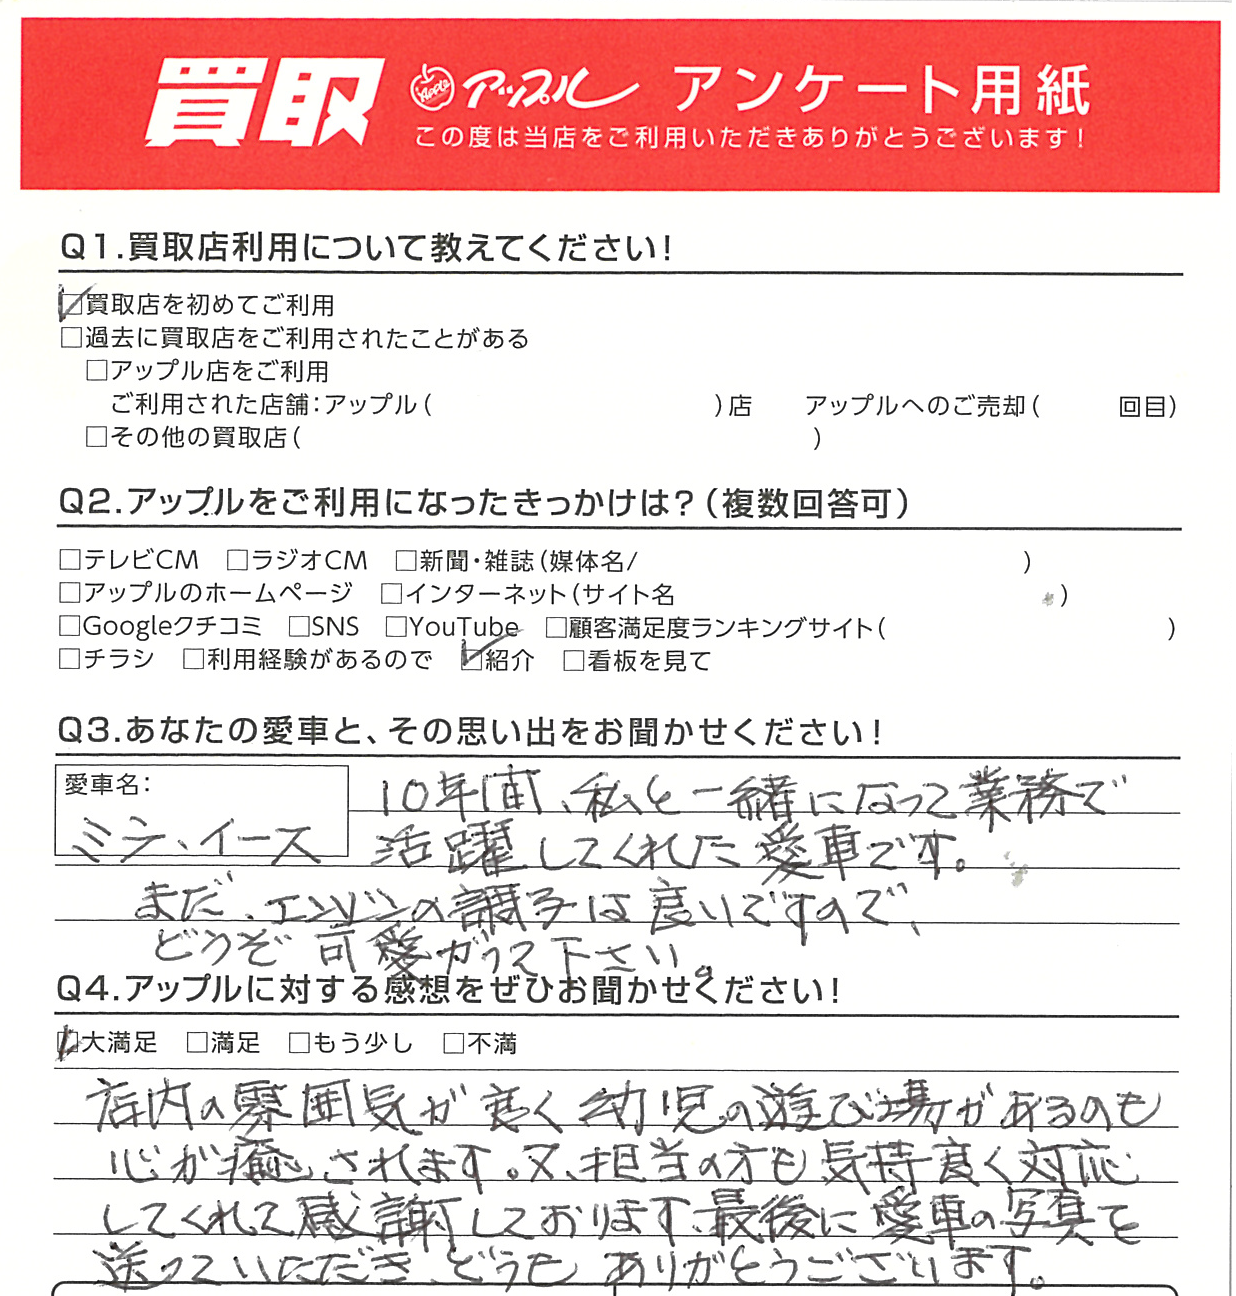 買取 Apple アップル アンケート用紙
この度は当店をご利用いただきありがとうございます！
Q1.買取店利用について教えてください！
☑買取店を初めてご利用
□過去に買取店をご利用されたことがある
□アップル店をご利用
ご利用された店舗：アップル（ ）店 アップルへのご売却（ 回目）
□その他の買取店（ ）
Q2.アップルをご利用になったきっかけは？（複数回答可）
□テレビCM □ラジオCM □新聞・雑誌（媒体名/ ）
□アップルのホームページ □インターネット（サイト名 ）
□Googleクチコミ □SNS □YouTube □顧客満足度ランキングサイト（ ）
□チラシ □利用経験があるので ☑紹介 □看板を見て
Q3.あなたの愛車と、その思い出をお聞かせください！
愛車名：
ミラ、イース
10年間、私と一緒になって業務で
活躍してくれた愛車です。
まだ、エンジンの調子は良いですので、
どうぞ可愛がって下さい。
Q4.アップルに対する感想をぜひお聞かせください！
☑大満足 □満足 □もう少し □不満
店内の雰囲気が良く幼児の遊び場があるのも
心が癒されます。又、担当の方も気持良く対応
してくれて感謝しております、最後に愛車の写真を
送っていただき、どうも ありがとうございます。